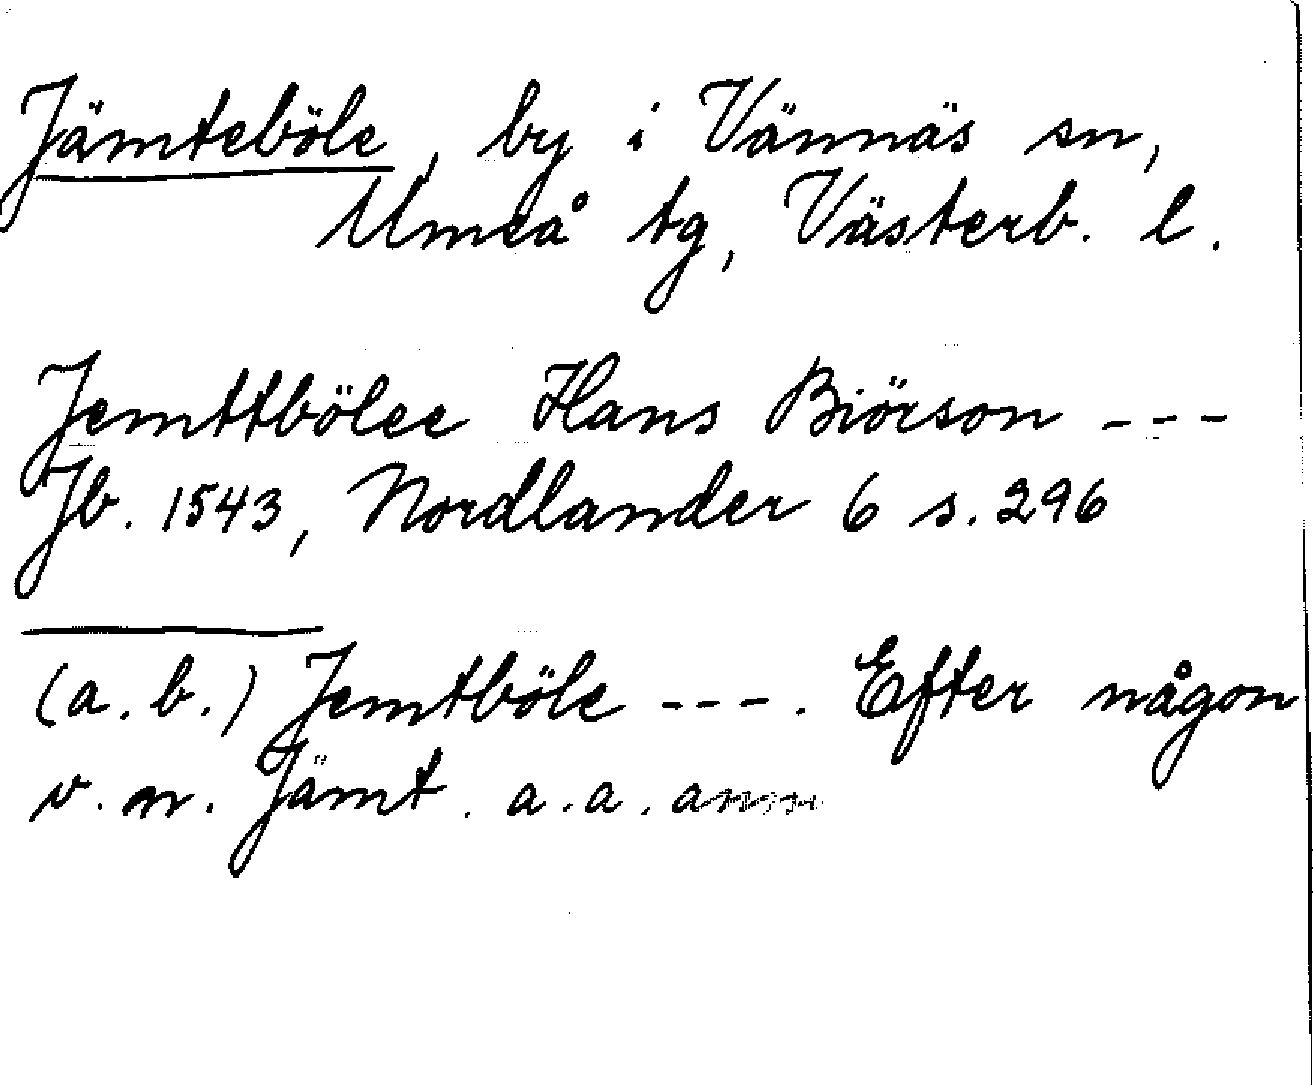 Jämteböle, by i Vännäs sn,
Umeå tg, Västerb. l.
Jemttbölee Hans Biörson ---
Jb. 1543, Nordlander 6 s. 296
(a. b.) Jemtböle ---. Efter någon
v. m. Jämt. a. a. anm